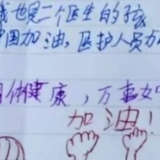 我也是一个医生的孩
中国加油，医护人员加
身体健康，万事如
加油！